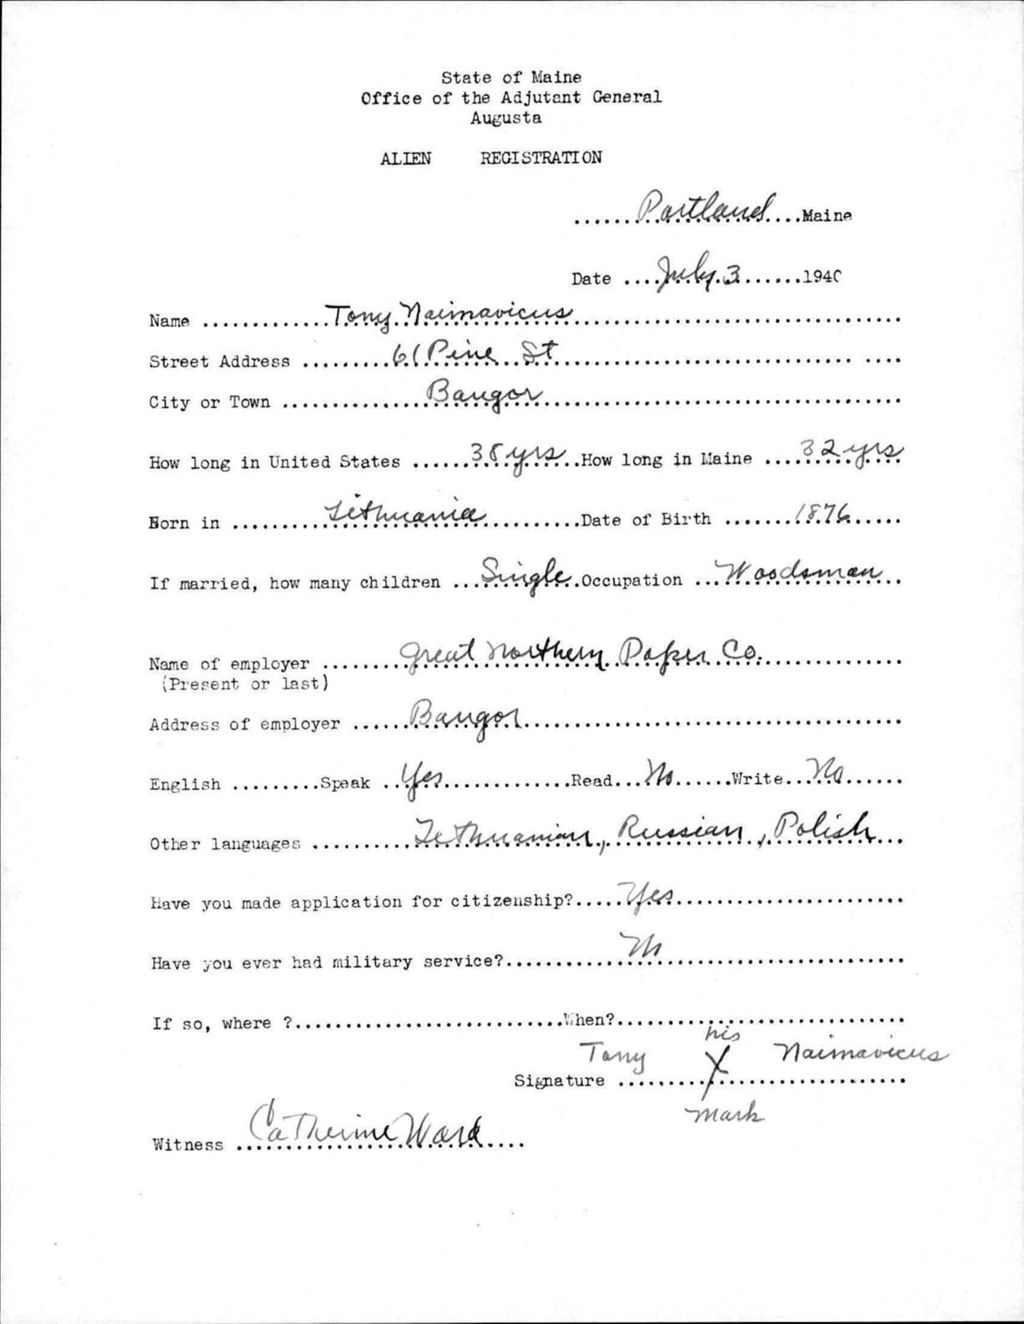 State of Maine
Office of the Adjutant General
Augusta
ALIEN REGISTRATION
......Portland....Maine
Date ....July 3.......1940
Name .............Tony Naimavicus...............................
Street Address .........61 Pine St............................... ....
City or Town ...............Bangor...................................
How long in United States ......38 yrs...How long in Maine ....32 yrs
Born in ..........Lithuania..........Date of Birth .......1876.....
If married, how many children ...Single.Occupation ...Woodsman..
Name of employer ........Great Northern Paper Co...............
(Present or last)
Address of employer ......Bangor......................................
English .........Speak ..Yes.............Read...No......Write...No......
Other languages ..........Lethuanian, Russian, Polish...
Have you made application for citizenship?.....Yes.......................
Have you ever had military service?............No........................
If so, where ?..........................When?...........................
his
Tony X Naimavicus
Signature ..............................
mark
Witness Catherine Ward....